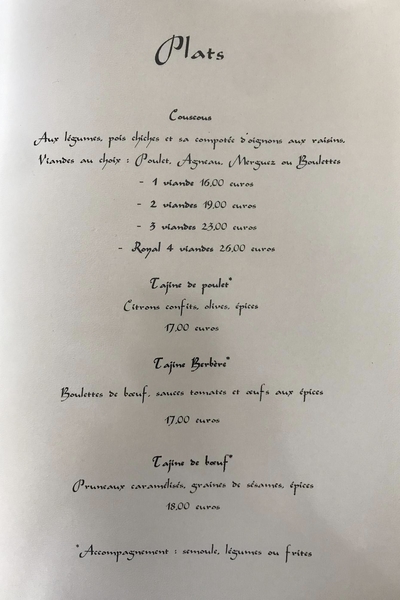 Plats
Couscous
Aux légumes, pois chiches et sa compotée d'oignons aux raisins.
Viandes au choix : Poulet, Agneau, Merguez ou Boulettes
- 1 viande 16,00 euros
- 2 viandes 19,00 euros
- 3 viandes 23,00 euros
- Royal 4 viandes 26,00 euros
Tajine de poulet*
Citrons confits, olives, épices
17,00 euros
Tajine Berbère*
Boulettes de bœuf, sauces tomates et œufs aux épices
17,00 euros
Tajine de bœuf*
Pruneaux caramélisés, graines de sésames, épices
18,00 euros
*Accompagnement : semoule, légumes ou frites